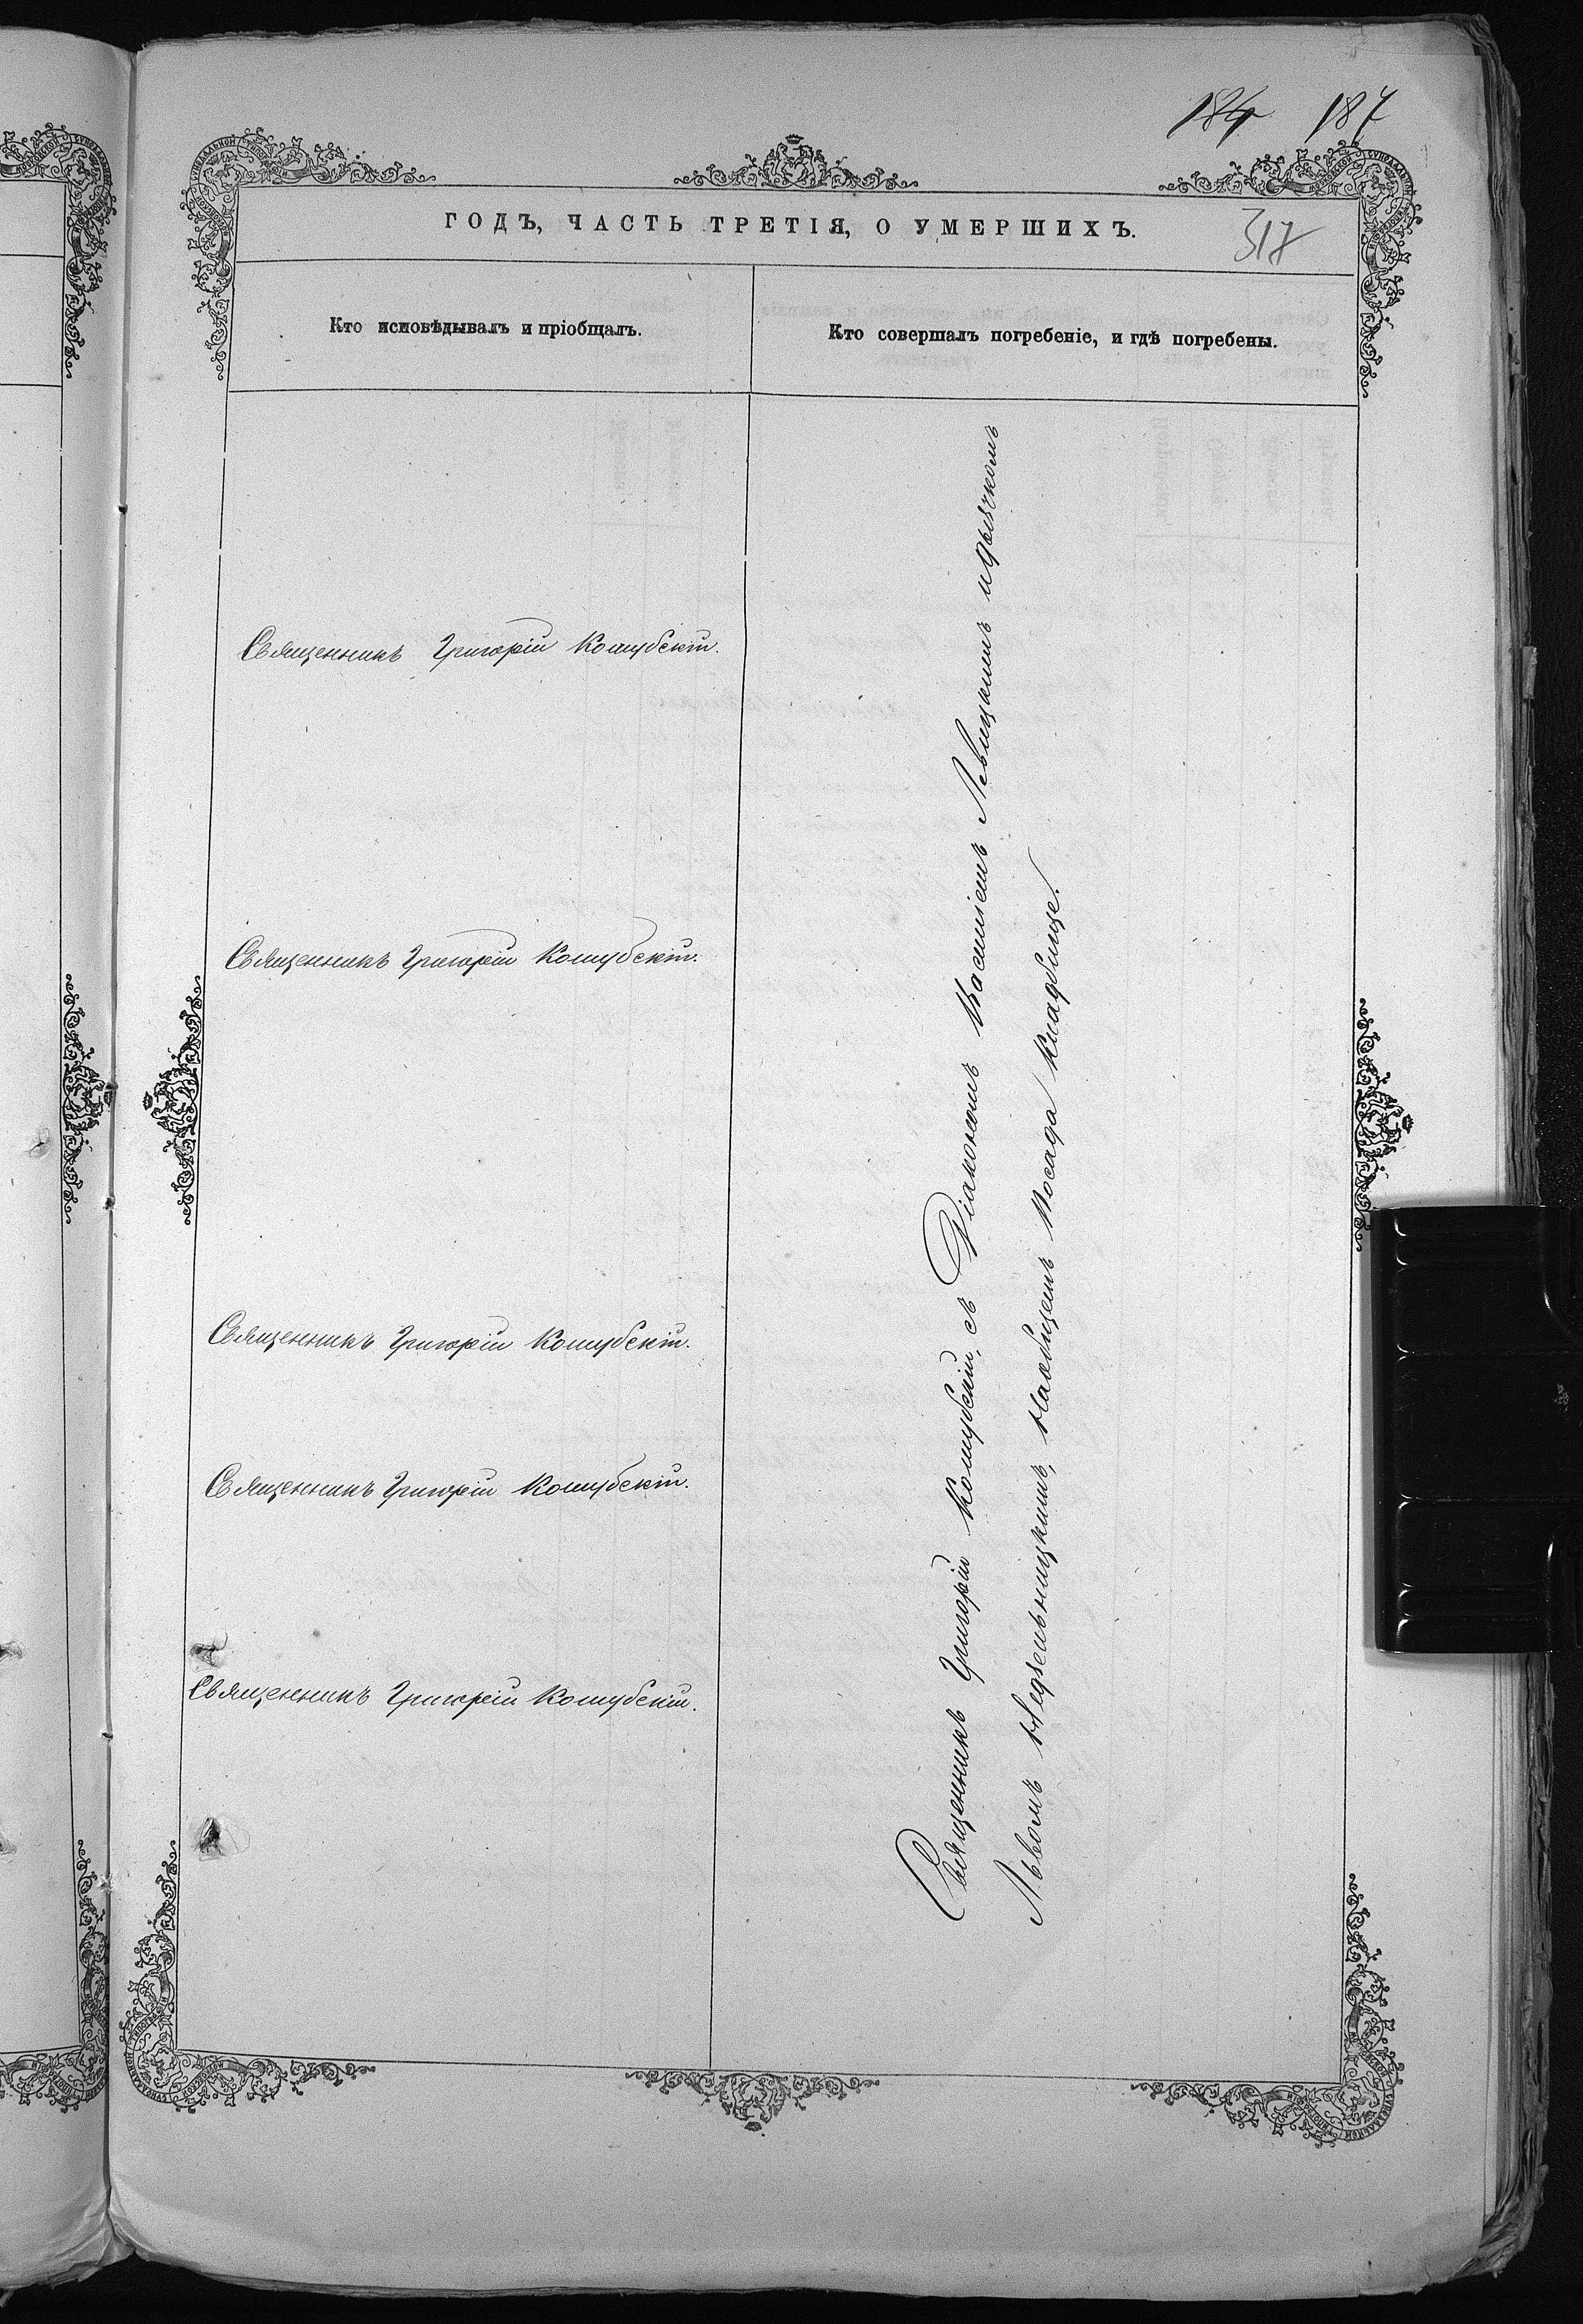 184 187
ГОДЪ, ЧАСТЬ ТРЕТІЯ, О УМЕРШИХЪ.
317
Кто исповѣдывалъ и пріобщалъ.
Кто совершалъ погребеніе, и гдѣ погребены.
Священникъ Григорій Кошубскій.
Священникъ Григорій Кошубскій.
Священникъ Григорій Кошубскій.
Священникъ Григорій Кошубскій.
Священникъ Григорій Кошубскій.
Священникъ Григорій Кошубскій, съ Діакономъ Василіемъ Левицкимъ и Дьячкомъ
Львомъ Недзельницкимъ, на общемъ посада кладбище.